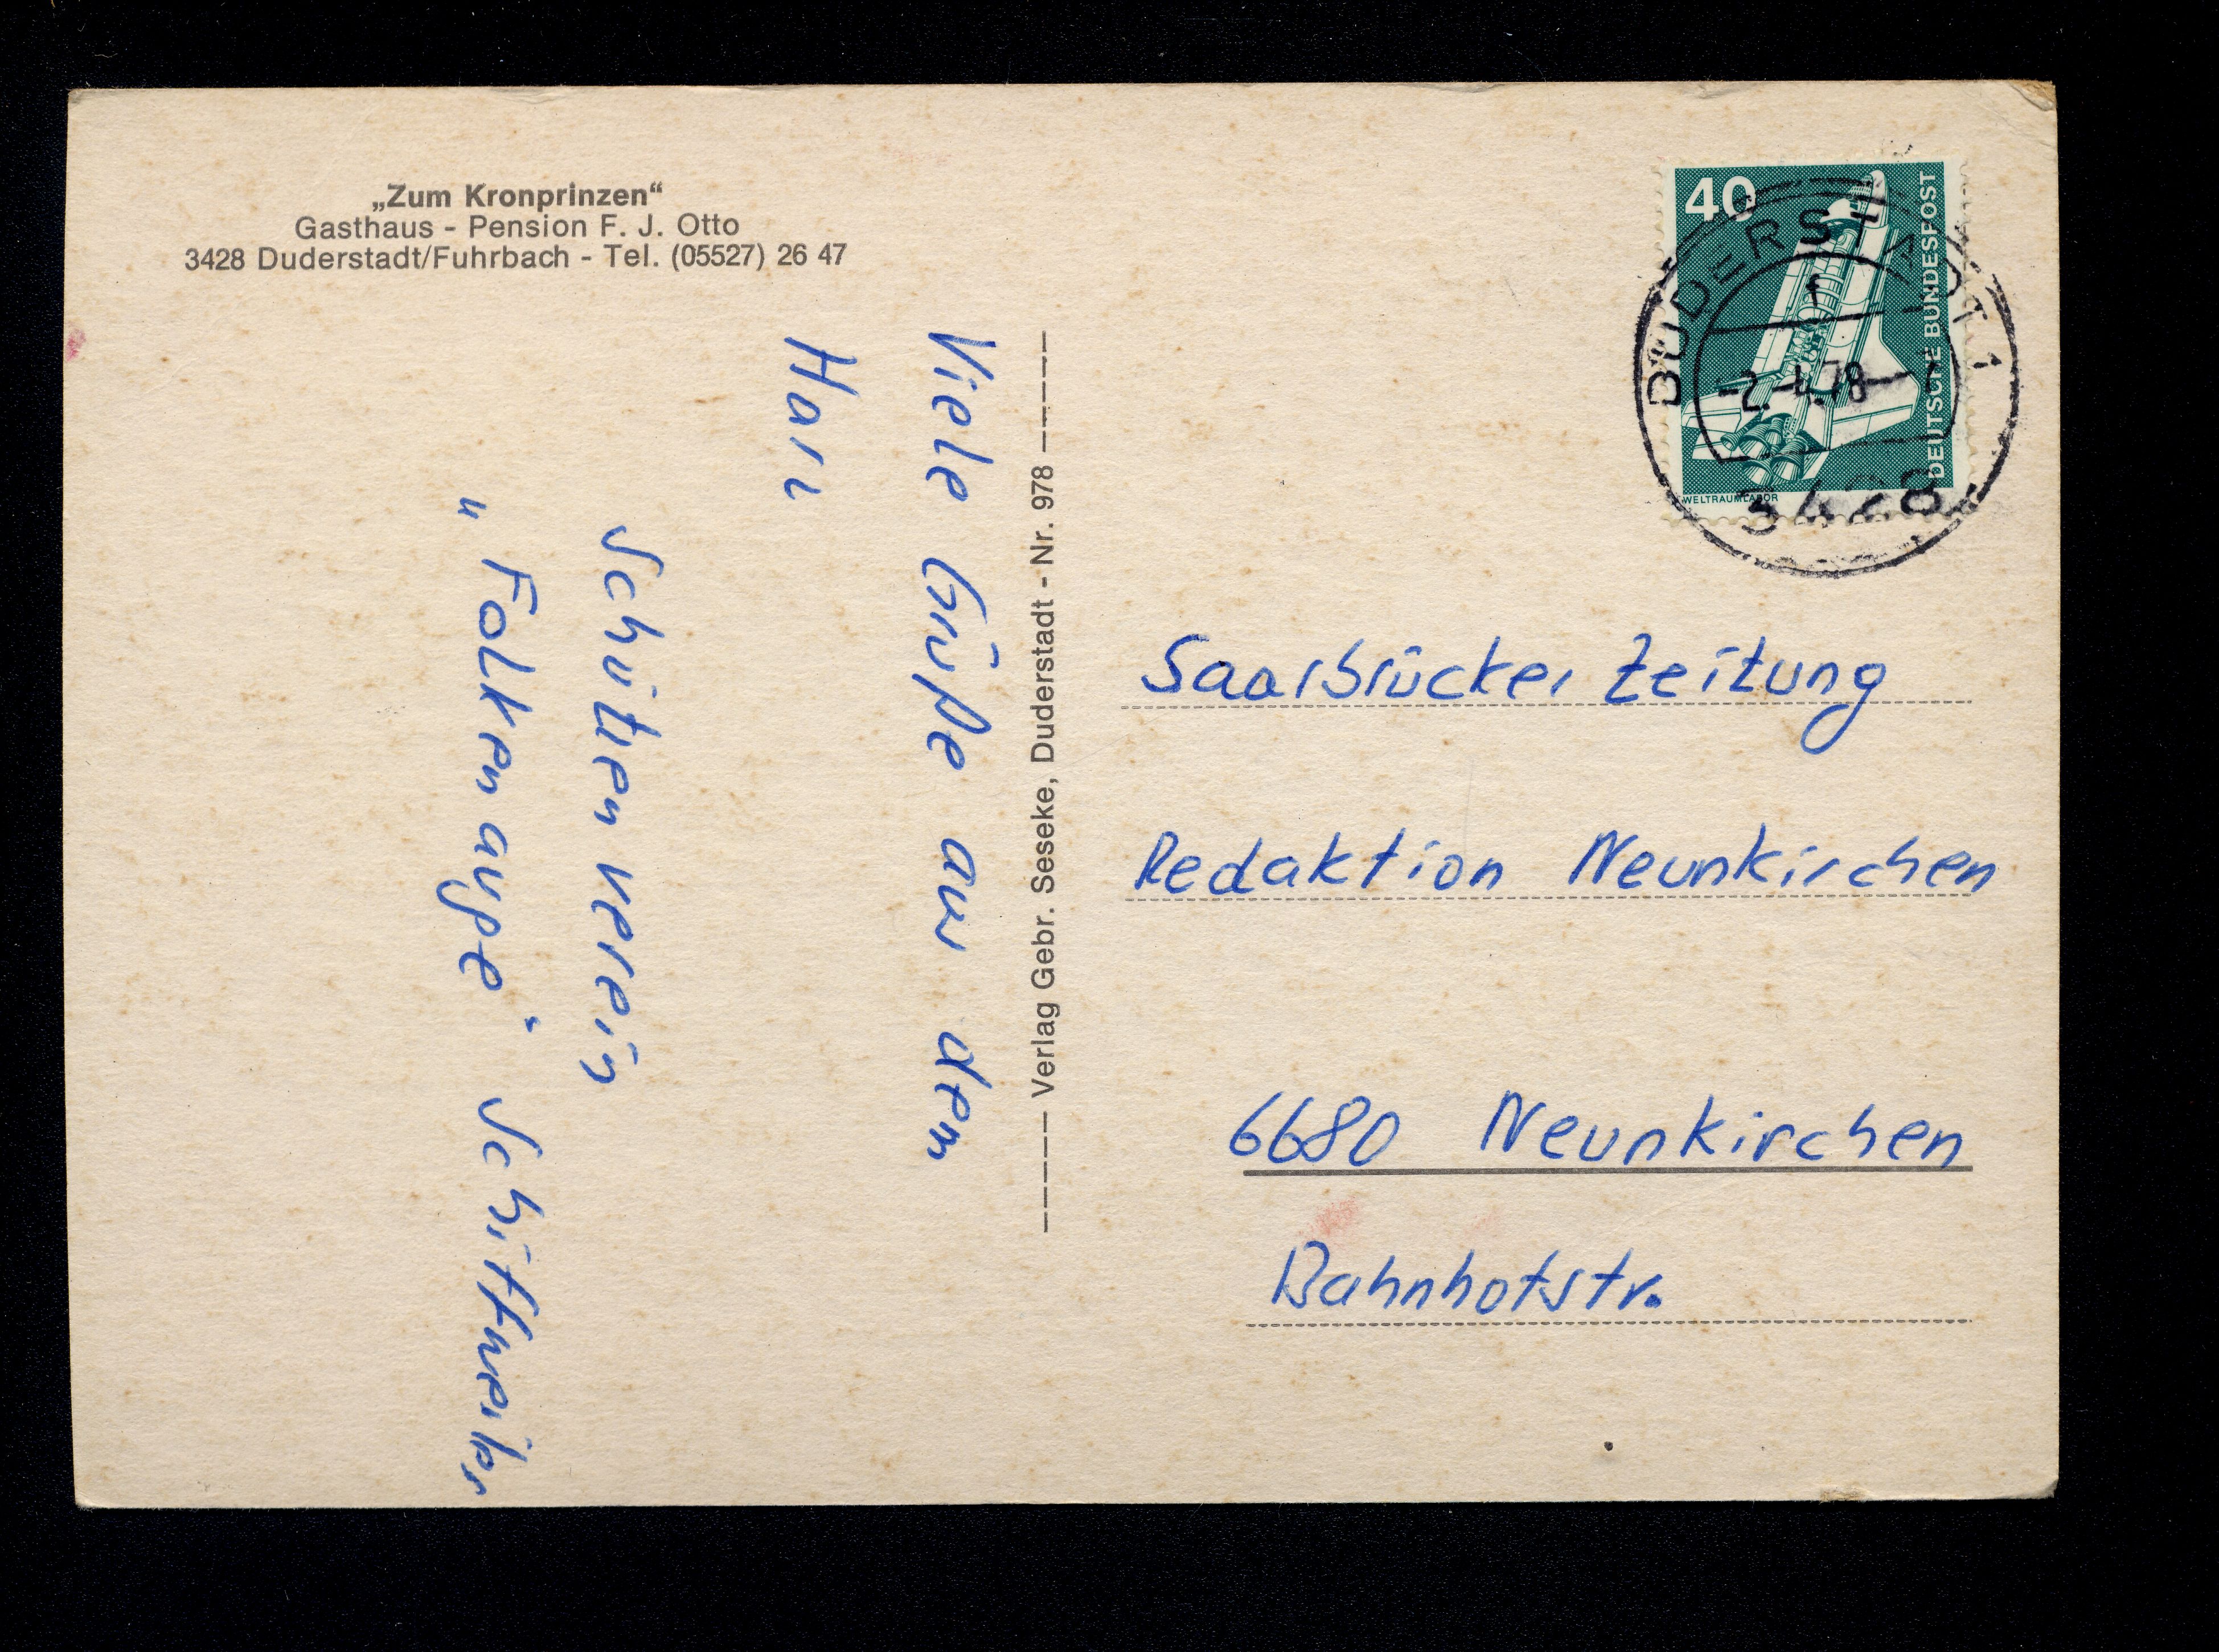 „Zum Kronprinzen“
Gasthaus - Pension F. J. Otto
3428 Duderstadt/Fuhrbach - Tel. (05527) 26 47
Viele Grüße aus dem
Harz
Schützenverein
"Falkenauge" Schiffweiler
Verlag Gebr. Seseke, Duderstadt - Nr. 978
40
DEUTSCHE BUNDESPOST
WELTRAUMLABOR
DUDERSTADT 1
f
-2.-4.78-
3428
Saarbrücker Zeitung
Redaktion Neunkirchen
6680 Neunkirchen
Bahnhofstr.